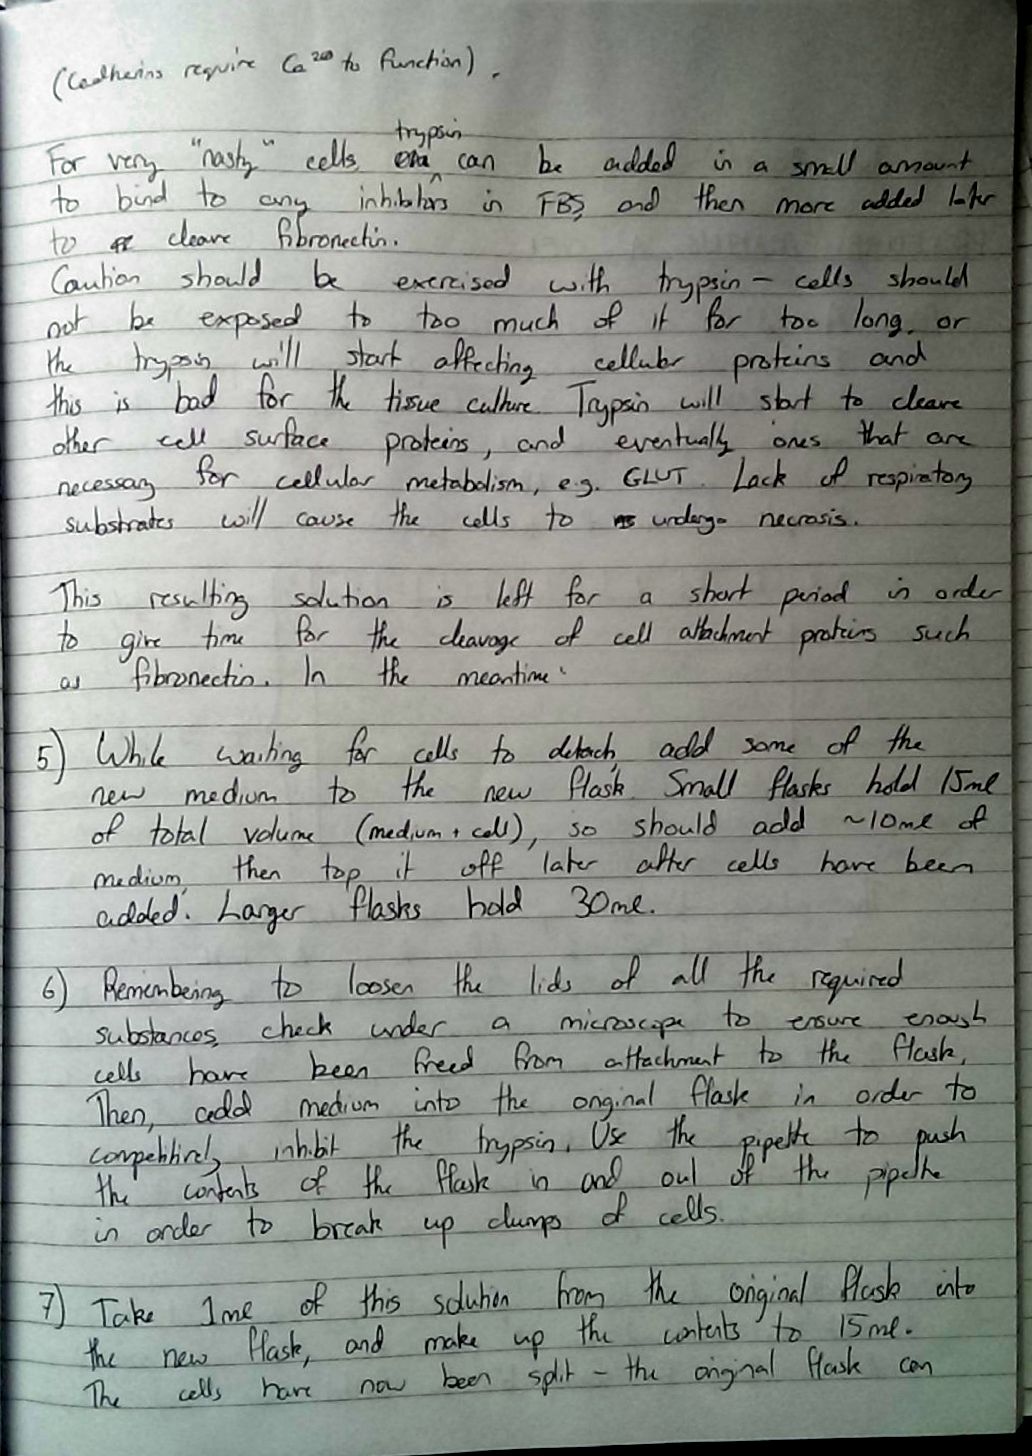 (Cadherins require Ca²⁺ to function).
For very "nasty" cells, trypsin can be added in a small amount
to bind to any inhibitors in FBS, and then more added later
to cleave fibronectin.
Caution should be exercised with trypsin – cells should
not be exposed to too much of it for too long, or
the trypsin will start affecting cellular proteins and
this is bad for the tissue culture. Trypsin will start to cleave
other cell surface proteins, and eventually ones that are
necessary for cellular metabolism, e.g. GLUT. Lack of respiratory
substrates will cause the cells to undergo necrosis.
This resulting solution is left for a short period in order
to give time for the cleavage of cell attachment proteins such
as fibronectin. In the meantime:
5) While waiting for cells to detach, add some of the
new medium to the new flask. Small flasks hold 15ml
of total volume (medium + cell), so should add ~10ml of
medium, then top it off later after cells have been
added. Larger flasks hold 30ml.
6) Remembering to loosen the lids of all the required
substances, check under a microscope to ensure enough
cells have been freed from attachment to the flask.
Then, add medium into the original flask in order to
competitively inhibit the trypsin. Use the pipette to push
the contents of the flask in and out of the pipette
in order to break up clumps of cells.
7) Take 1ml of this solution from the original flask into
the new flask, and make up the contents to 15ml.
The cells have now been split – the original flask can